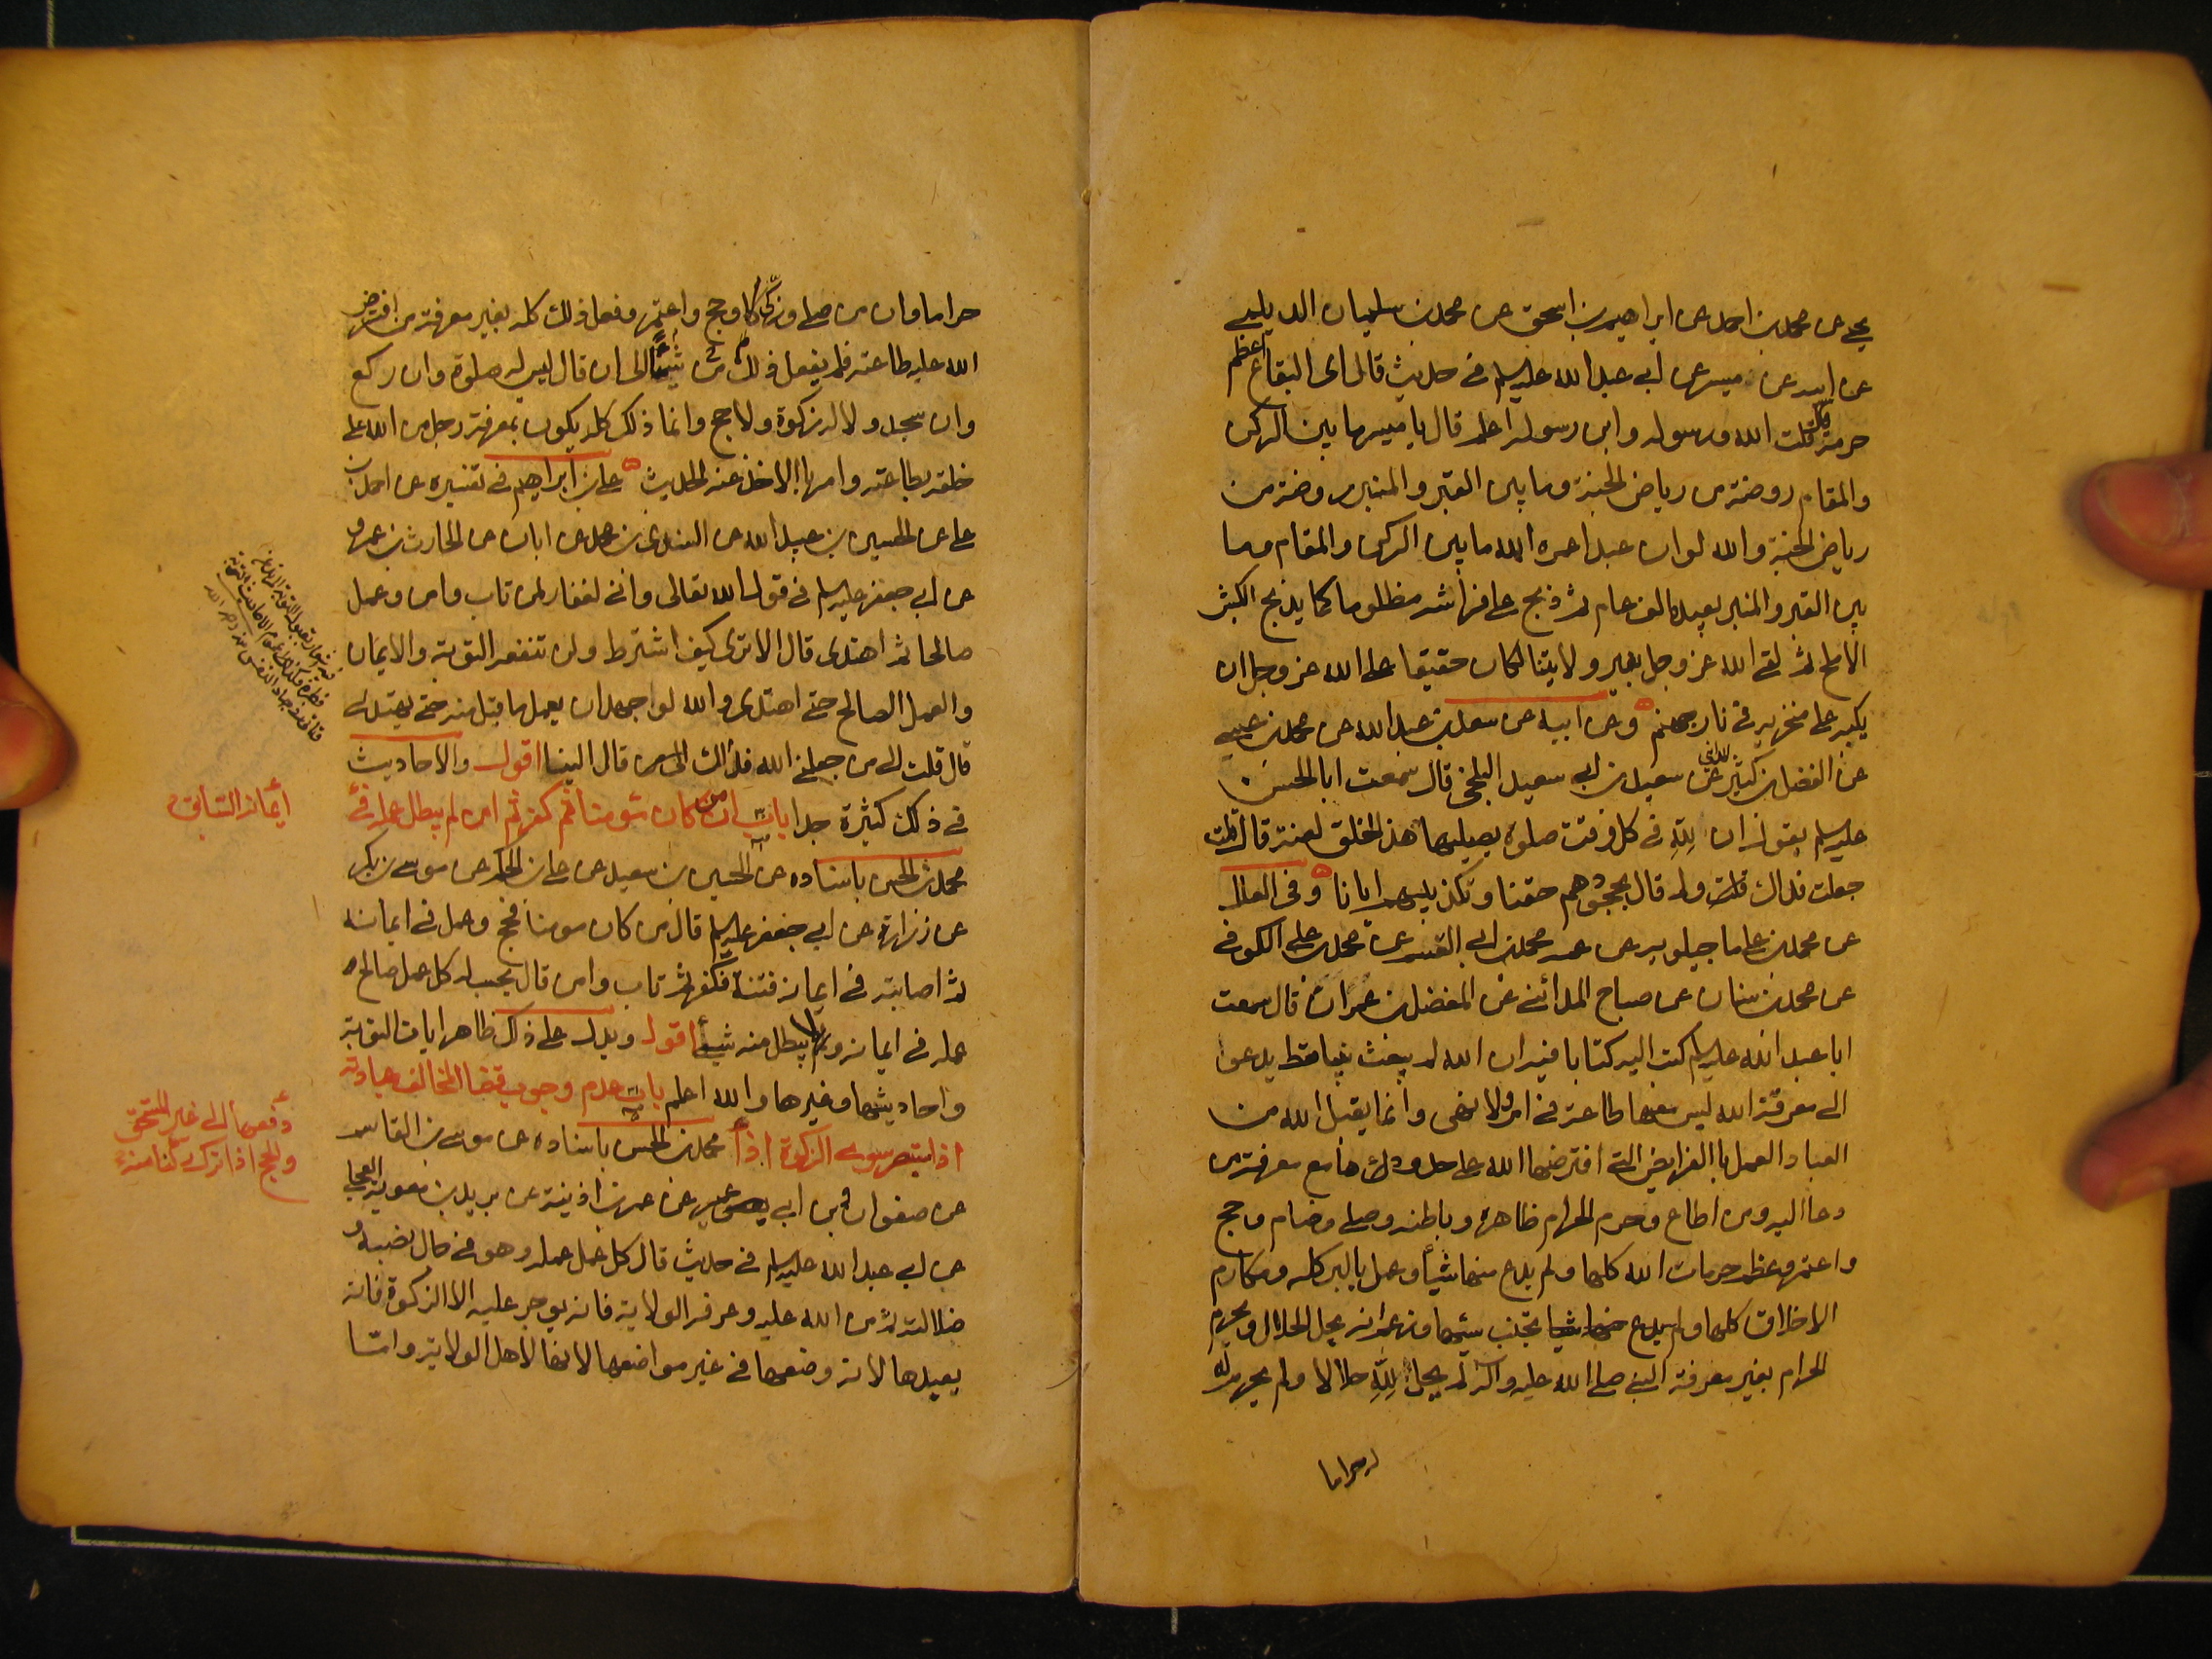 يحيى عن محمد بن احمد عن ابراهيم بن اسحق عن محمد بن سليمان الديلمي
عن ابيه عن ميسر عن ابي عبد الله عليه السلم في حديث قال اى البقاع اعظم
حرمة قلت الله ورسوله وابن رسوله اعلم قال يا ميسر ما بين الركن
والمقام روضة من رياض الجنة وما بين القبر والمنبر روضة من
رياض الجنة والله لو ان عبدا عمره الله ما بين الركن والمقام وما
بين القبر والمنبر يعبده الف عام ثم ذبح على فراشه مظلوما كما يذبح الكبش
الاملح ثم لقى الله عز وجل بغير ولايتنا لكان حقيقا على الله عز وجل ان
يكبه على منخريه في نار جهنم وعن ابيه عن سعد بن عبد الله عن محمد بن عيسى
عن الفضل بن كثير المدائني عن سعيد بن ابي سعيد البلخي قال سمعت ابا الحسن
عليه السلم يقول ان لله في كل وقت صلوة يصليها هذا الخلق لعنة قال قلت
جعلت فداك ولم قال بجحودهم حقنا وتكذيبهم ايانا وفي العلل
عن محمد بن علي ماجيلويه عن عمه محمد بن ابي القسم عن محمد بن علي الكوفي
عن محمد بن سنان عن صباح المدائني عن المفضل بن عمر ان قال سمعت
ابا عبد الله عليه السلم كتب اليه كتابا فيه ان الله لم يبعث نبيا قط يدعوا
الى معرفة الله ليس معها طاعة في امر ولا نهى وانما يقبل الله من
العباد العمل بالفرايض التي افترضها الله على حدودها مع معرفة من
دعا اليه ومن اطاع وحرم الحرام ظاهره وباطنه وصلى وصام وحج
واعتمر وعظم حرمات الله كلها ولم يدع منها شيئا وعمل بالبر كله ومكارم
الاخلاق كلها وتجنب سيئها وزعم انه يحل الحلال ويحرم
الحرام بغير معرفة النبي صلى الله عليه واله لم يحل لله حلالا ولم يحرم له
له حراما
حراما وان من صلى وزكى وحج واعتمر وفعل ذلك كله بغير معرفة من افترض
الله عليه طاعته فلم يفعل ذلك من شيئا الى ان قال ليس له صلوة وان ركع
وان سجد ولا له زكوة ولا حج وانما ذلك كله يكون بمعرفة رجل من الله على
خلقه بطاعته وامر بالاخذ عنه الحديث علي بن ابراهيم في تفسيره عن احمد بن
علي عن الحسين بن عبيد الله عن السندي بن محمد عن ابان عن الحارث بن عمرو
عن ابي جعفر عليه السلم في قول الله تعالى واني لغفار لمن تاب وامن وعمل
صالحا ثم اهتدى قال الا ترى كيف اشترط ولن تنفعه التوبة والايمان
والعمل الصالح حتى اهتدى والله لو اجهد ان يعمل ما قبل منه حتى يهتدى
قال قلت الى من جعلني الله فداك الى من قال الينا اقول والاحاديث
في ذلك كثيرة جدا باب ان من كان مؤمنا ثم كفر ثم امن لم يبطل عمله في
ايمانه السابق
محمد بن الحسن باسناده عن الحسين بن سعيد عن علي بن الحكم عن موسى بن بكر
عن زرارة عن ابي جعفر عليه السلم قال من كان مومنا فحج وعمل في ايمانه
ثم اصابته في ايمانه فتنة فكفر ثم تاب وامن قال يحسب له كل عمل صالح
عمله في ايمانه ولا يبطل منه شيئ اقول ويدل على ذلك ظاهر ايات التوبة
واحاديثها وغيرها والله اعلم باب عدم وجوب قضا المخالف عبادته
اذا استبصر سوى الزكوة اذا
دفعها الى غير المستحق
والحج اذا ترك ركنا منه
محمد بن الحسن باسناده عن موسى بن القاسم
عن صفوان وابن ابي عمير عن عمر بن اذينة عن بريد بن معوية العجلي
عن ابي عبد الله عليه السلم في حديث قال كل عمل عمله وهو في حال نصبه و
ضلالته ثم من الله عليه وعرفه الولاية فانه يوجر عليه الا الزكوة فانه
يعيدها لانه وضعها في غير مواضعها لانها لاهل الولاية واما